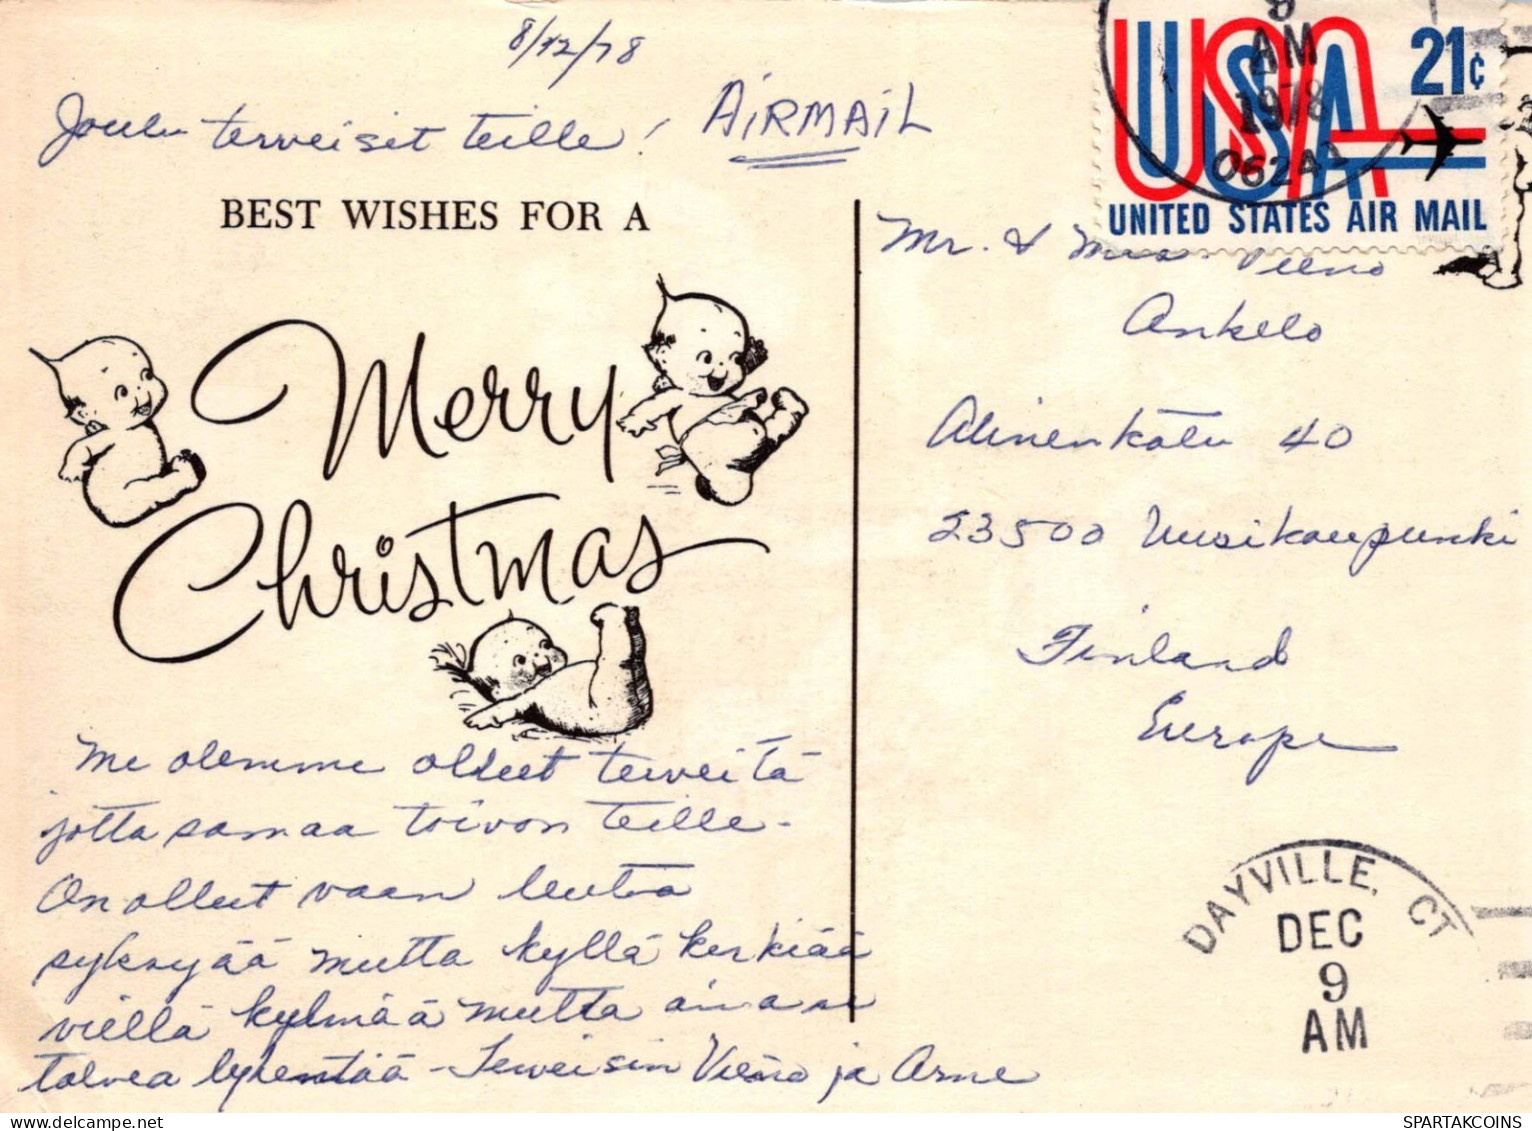 8/12/78
Joulu terveiset teille!
AIRMAIL
9
AM
1978
06241
USA 21¢
UNITED STATES AIR MAIL
BEST WISHES FOR A
Merry
Christmas
Mr. & Mrs. Veeno
Ankelo
Alinenkatu 40
23500 Uusikaupunki
Finland
Europe
Me olemme olleet terveitä
jotta samaa toivon teille -
On ollut vaan leutoa
syksyää mutta kyllä kerkiää
viellä kylmää mutta aina se
talvea lyhentää - Terveisin Vieno ja Arne
DAYVILLE, CT
DEC
9
AM
SPARTAKCOINS